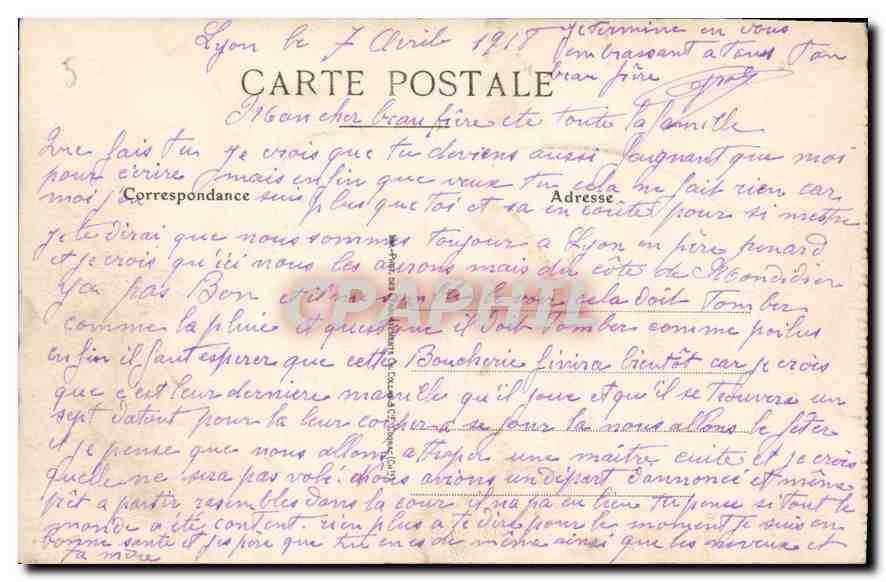 Lyon le 7 Avril 1918
je termine en vous
embrassant a tous Ton
beau frère
5
CARTE POSTALE
Mon cher beau frère ete toute la famille
Que fais tu je crois que tu deviens aussi feignant que moi
pour écrire mais enfin que veux tu cela ne fait rien car
moi je suis plus que toi et sa en coûte pour si mettre
Correspondance
Adresse
je te dirai que nous sommes toujour a Lyon en père penard
et je crois qu'ici nous les aurons mais du côte de Mondidier
ya pas Bon et il me semble le voir cela doit tomber
comme la pluie et quesque il doit tomber comme poilus
enfin il faut esperer que cette Boucherie finira bientôt car je crois
que c'est leur derniere manille qu'il joue et qu'il se trouvera un
sept datout pour la leur couper a se jour la nous allons le fêter
et je pense que nous allons atraper une maître cuite et je crois
quelle ne sera pas volé. Nous avions un départ dannoncé et même
prêt a partir resembles dans la cour il na pa eu lieu tu pense si tout le
monde a été content. rien plus a te dire pour le moment je suis en
bonne santé et jespère que tu en es de même ainsi que les neveux et
ta mère
CPAPHIL